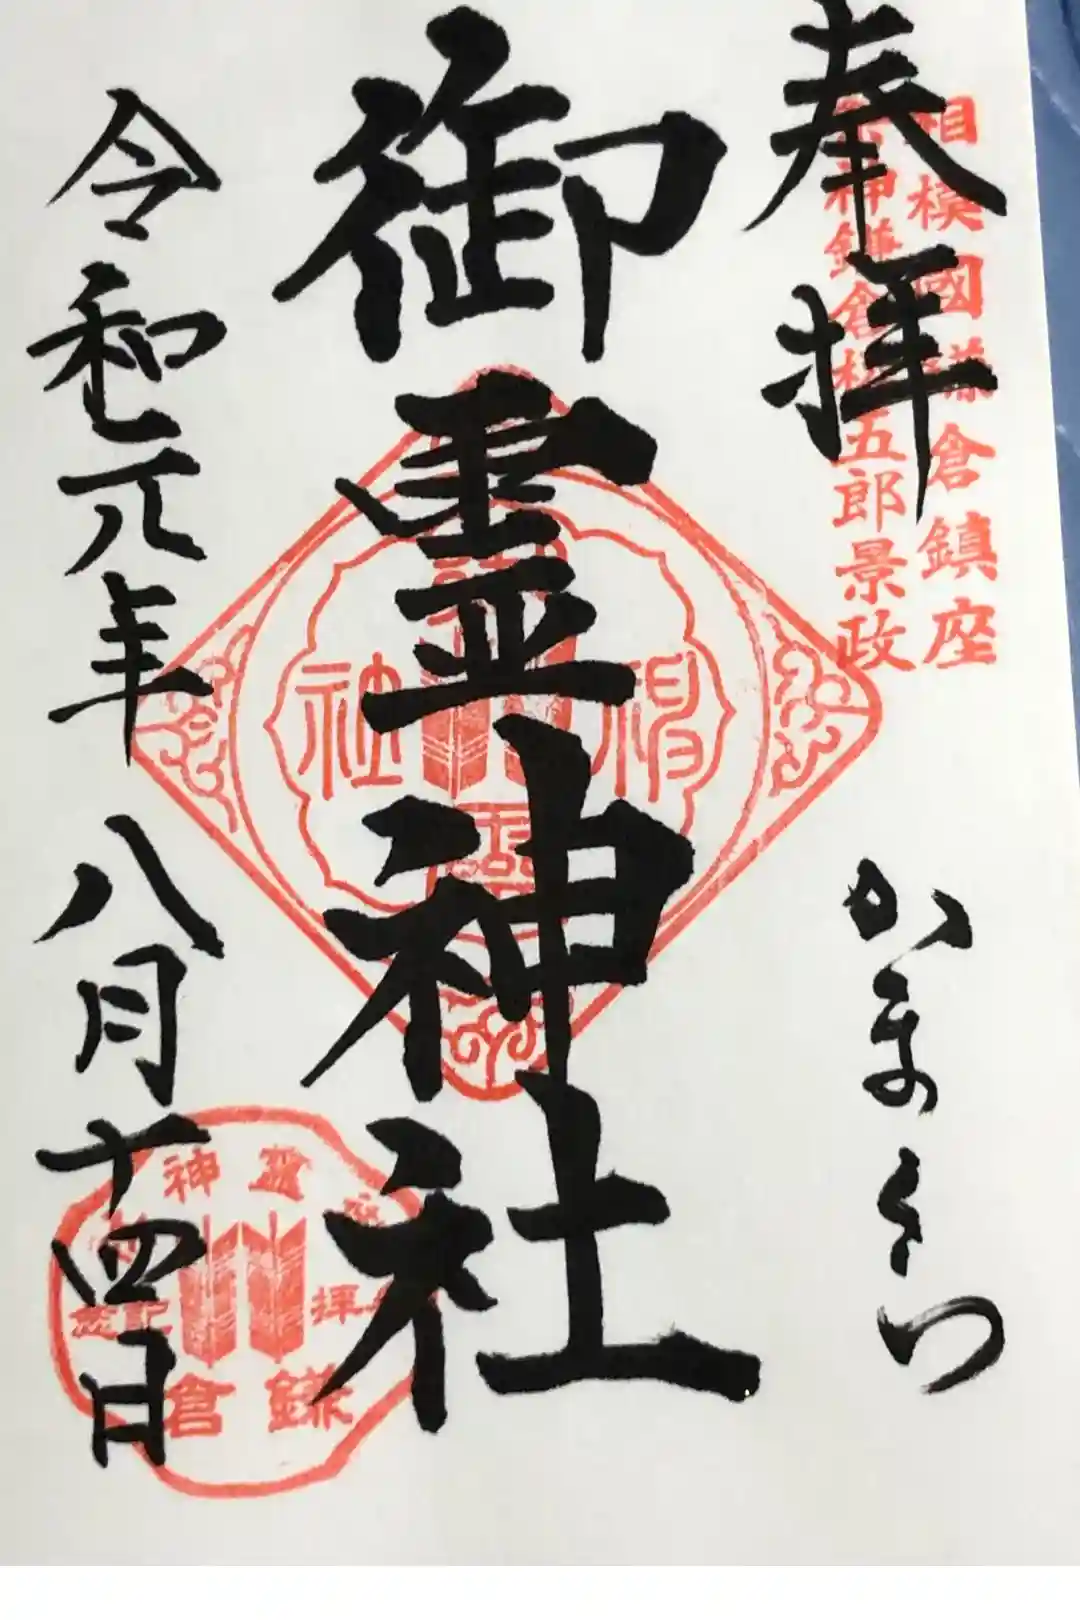 奉拝
相模國鎌倉鎮座
神鎌倉権五郎景政
かまくら
御霊神社
令和元年 八月十四日
神霊
参拝
記念
鎌倉